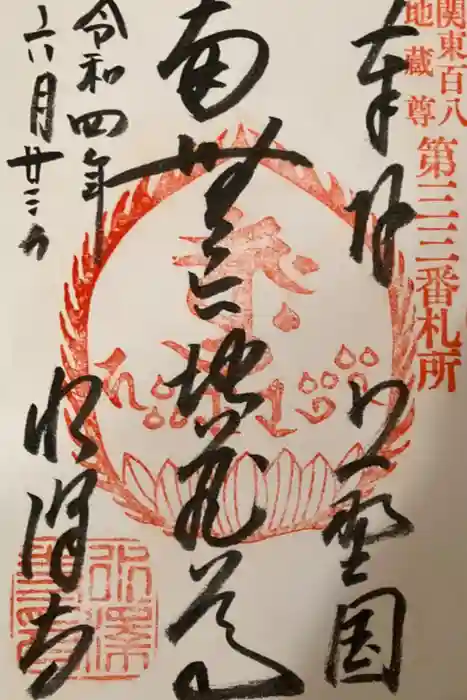 関東百八
地蔵尊
第三三番札所
奉拝
上野国
南無六地蔵尊
令和四年
六月廿三日
水澤寺